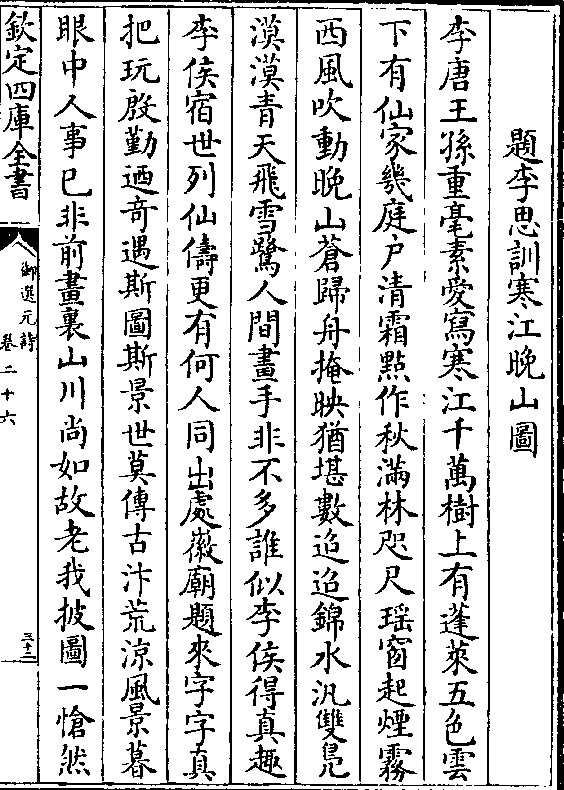 題李思訓寒江晚山圖
李唐王孫重毫素愛寫寒江千萬樹上有蓬萊五色雲
下有仙家幾庭戶清霜點作秋滿林咫尺瑶窗起煙霧
西風吹動晚山蒼歸舟掩映猶堪數迢迢錦水汎雙鳬
漠漠青天飛雪鷺人間畫手非不多誰似李侯得真趣
李侯宿世列仙儔更有何人同出處徽廟題來字字真
把玩殷勤迺奇遇斯圖斯景世莫傳古汴荒涼風景暮
眼中人事已非前畫裏山川尚如故老我披圖一愴然
欽定四庫全書
御選元詩
卷二十六
三十二